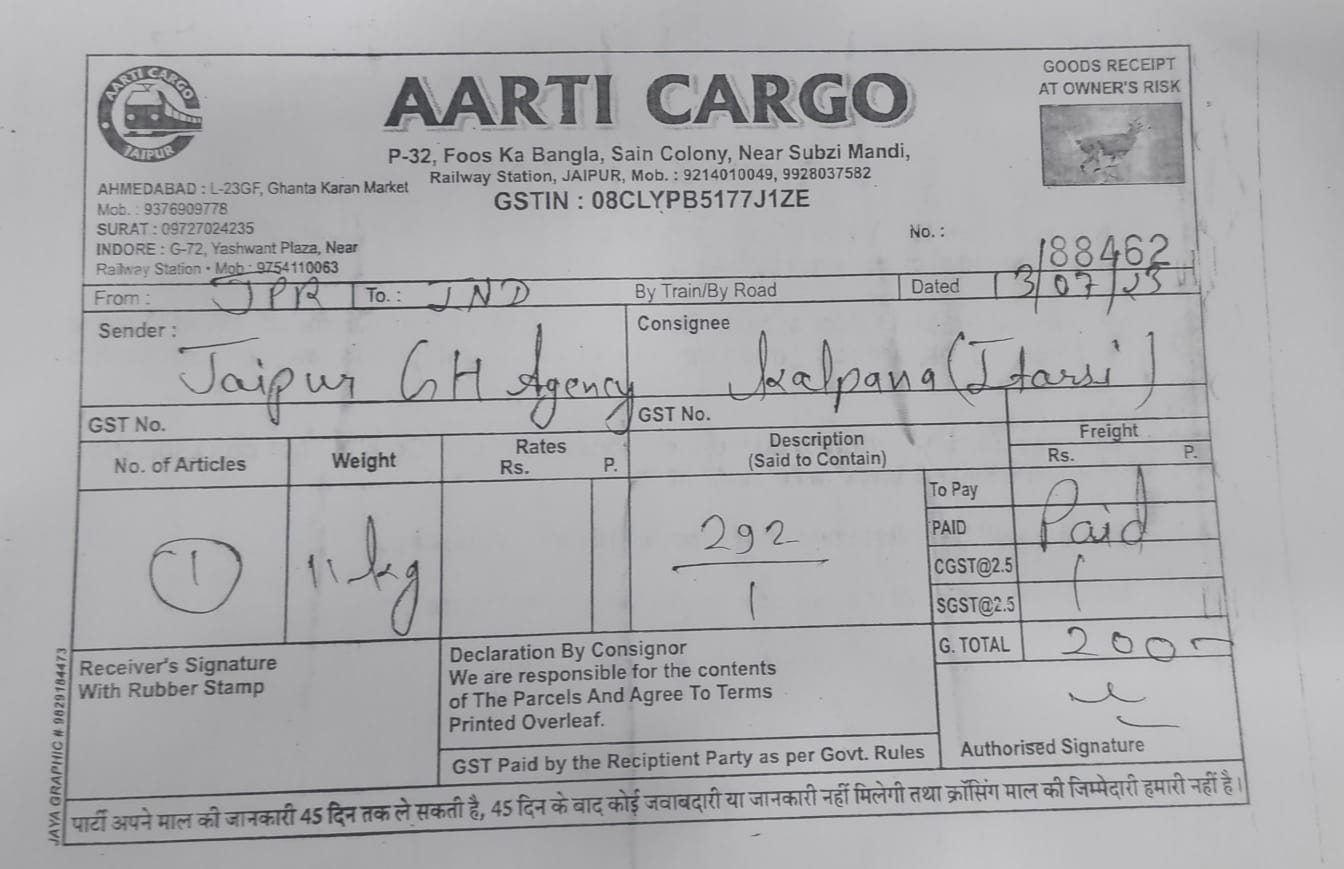 AARTI CARGO
JAIPUR
AARTI CARGO
GOODS RECEIPT
AT OWNER'S RISK
P-32, Foos Ka Bangla, Sain Colony, Near Subzi Mandi,
Railway Station, JAIPUR, Mob. : 9214010049, 9928037582
GSTIN : 08CLYPB5177J1ZE
AHMEDABAD : L-23GF, Ghanta Karan Market
Mob. : 9376909778
SURAT : 09727024235
INDORE : G-72, Yashwant Plaza, Near
Railway Station • Mob : 9754110063
No. : 188462
From : JPR To. : IND By Train/By Road Dated 3/07/23
Sender : Jaipur GH Agency
Consignee Kalpana (Itarsi)
GST No. GST No.
No. of Articles Weight Rates Rs. P. Description (Said to Contain) Freight Rs. P.
1 11 kg 292/1
To Pay
PAID Paid
CGST@2.5
SGST@2.5
G. TOTAL 200-
Receiver's Signature
With Rubber Stamp
Declaration By Consignor
We are responsible for the contents
of The Parcels And Agree To Terms
Printed Overleaf.
GST Paid by the Reciptient Party as per Govt. Rules
Authorised Signature
पार्टी अपने माल की जानकारी 45 दिन तक ले सकती है, 45 दिन के बाद कोई जवाबदारी या जानकारी नहीं मिलेगी तथा क्रॉसिंग माल की जिम्मेदारी हमारी नहीं है।
JAYA GRAPHIC # 9829184473